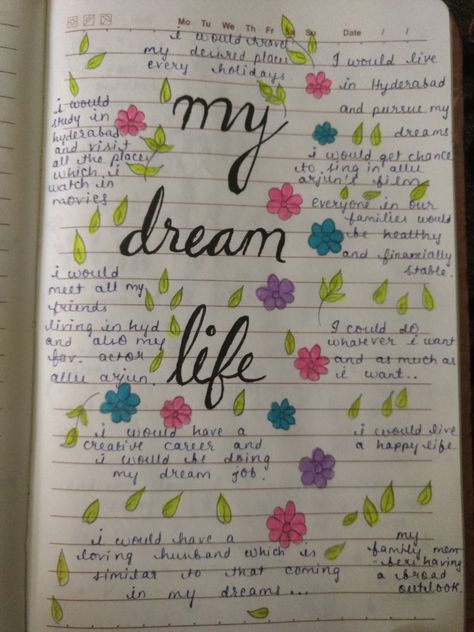 Mo Tu We Th Fr Sa Su Date / /
i would travel
my desired places
every holidays.
I would live
in Hyderabad
and pursue my
dreams
i would
study in
hyderabad
and visit
all the places
which i
watch in
movies
my
dream
life
i would get chance
to sing in allu
arjun's film
Everyone in our
families would
be healthy
and financially
stable.
i would
meet all my
friends
living in hyd
and also my
fav. actor
allu arjun.
I could do
whatever i want
and as much as
i want..
i would have a
creative career and
i would be doing
my dream job.
i would live
a happy life
i would have a
loving husband which is
similar to that coming
in my dreams...
my
family mem
-bers having
a broad
outlook.